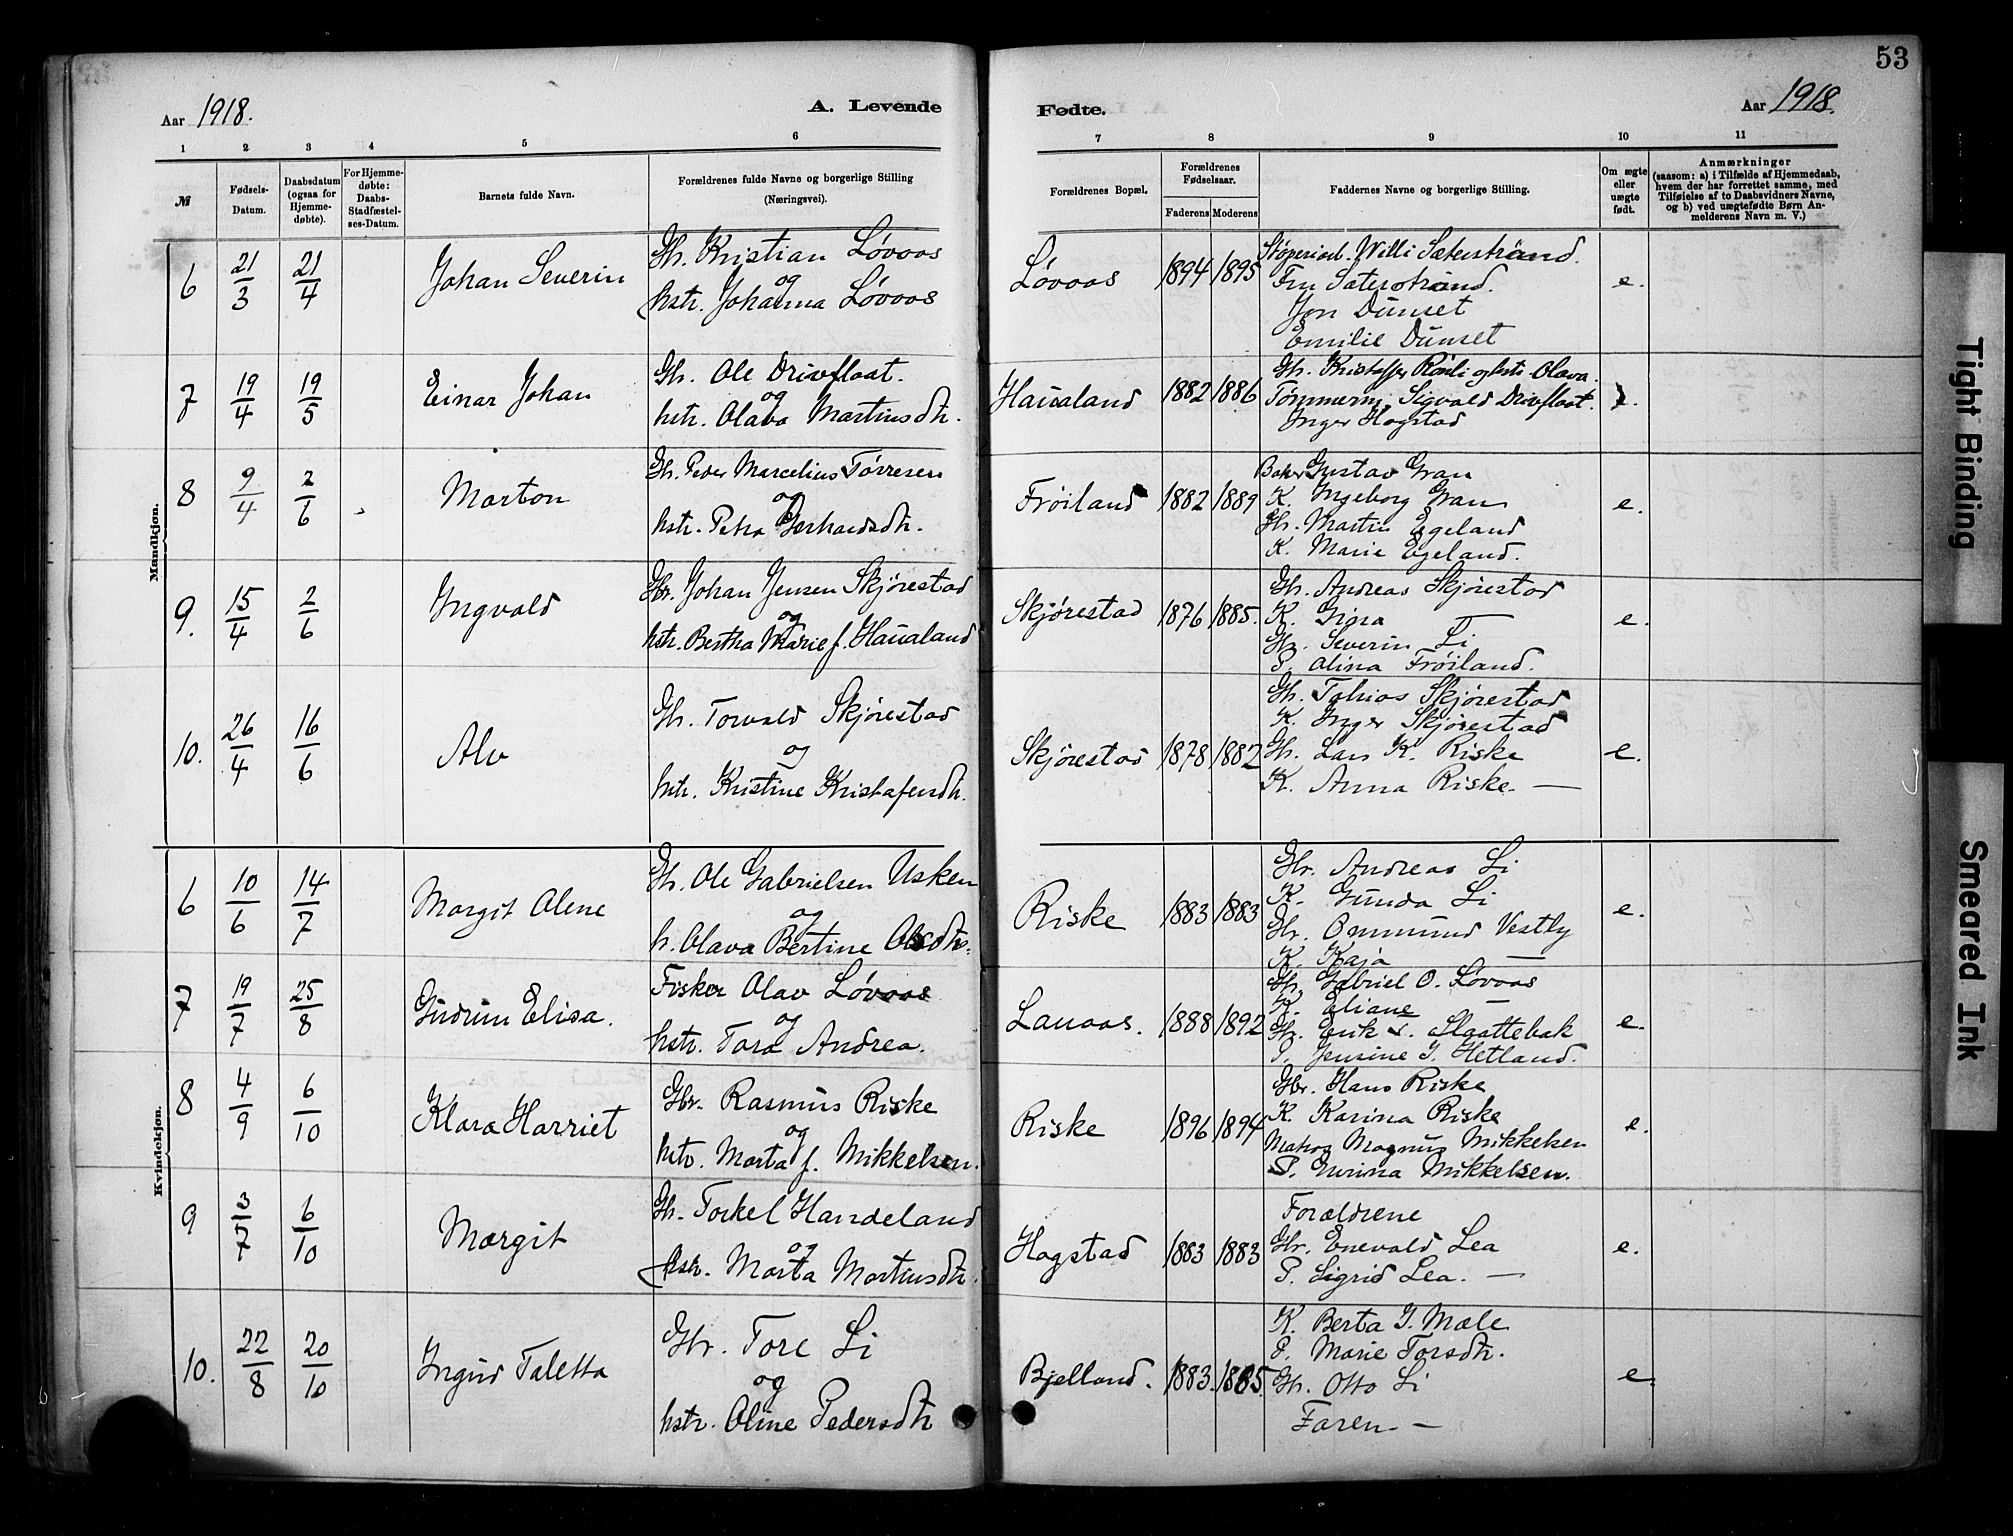 53
Aar 1918.
A. Levende
Fødte.
Aar 1918.
1 2 3 4 5 6 7 8 9 10 11
№
Fødsels-Datum.
Daabsdatum (ogsaa for Hjemme-døbte).
For Hjemme-døbte: Daabs-Stadfæstel-ses-Datum.
Barnets fulde Navn.
Forældrenes fulde Navne og borgerlige Stilling
(Næringsvei).
Forældrenes Bopæl.
Forældrenes Fødselsaar.
Faderens Moderens
Faddernes Navne og borgerlige Stilling.
Om ægte eller uægte født.
Anmærkninger
(saasom: a) i Tilfælde af Hjemmedaab,
hvem der har forrettet samme, med
Tilføielse af to Daabsvidners Navne,
og b) ved uægtefødte Børn An-
melderens Navn m. V.)
Mandkjøn.
6 21/3 21/4 Johan Severin
Gb. Kristian Løvoas
og
hstr. Johanna Løvoas
Løvoas 1894 1895
Willi Sæterstrand.
Fru Sæterstrand.
Jon Dunset
Emilie Dunset
e.
7 19/4 19/5 Einar Johan
Gb. Ole Drivfloat.
og
hstr. Olava Martinsdtr.
Haualand 1882 1886
Gb. Kristoffer Rønli og hstr. Olava.
Tømmerm. Sigvald Drivfloat.
Inger Hogstad
8 9/4 2/6 Morton
Gb. Peder Marcelius Tørresen
og
hstr. Petra Gerhardsdtr.
Frøiland 1882 1889
Baker Gustav Gran
K. Ingeborg Gran
Gb. Martin Egeland
K. Marie Egeland.
e.
9. 15/4 2/6 Ingvald
Gbr. Johan Jensen Skjørestad
og
hstr. Bertha Marie f. Haualand
Skjørestad 1876 1885.
Gb. Andreas Skjørestad
K. Gina —
Gb. Severin Li
P. Olina Frøiland.
e.
10. 26/4 16/6 Alv
Gb. Torvald Skjørestad
og
hstr. Kristine Kristofersdtr.
Skjørestad 1878 1882
Gb. Tobias Skjørestad
K. Inger Skjørestad
Gb. Lars K. Riske
K. Anna Riske. —
e.
Kvindekjøn.
6 10/6 14/7 Margit Olene
Gb. Ole Gabrielsen Usken
og
h. Olava Bertine Olsdtr.
Riske 1883 1883
Gbr. Andreas Li
K. Gunda Li
Gb. Ommund Vestly
K. Kaja —
e.
7 19/7 25/8 Gudrun Elisa.
Fisker Olav Løvoas
og
hstr. Tora Andrea.
Lauoas. 1888 1892
Gb. Gabriel O. Løvoas
K. Eliane —
Gb. Erik Slaattebak
P. Jensine J. Hetland.
e.
8 4/9 6/10 Klara Harriet
Gbr. Rasmus Riske
og
hstr. Marta f. Mikkelsen.
Riske 1896 1894
Gbr. Hans Riske
K. Karina Riske
Matros Magnus Mikkelsen
P. Mikkelsen.
e.
9 3/7 6/10 Margit
Gb. Torkel Handeland
og
hstr. Marta Martinsdtr.
Hogstad 1883 1883
Forældrene
Gbr. Enevald Lea
P. Sigrid Lea. —
e.
10. 22/8 20/10 Ingrid Taletta
Gbr. Tore Li
og
hstr. Oline Pedersdtr
Bjelland. 1883. 1885.
K. Berta G. Mæle
P. Marie Torsdtr.
Gb. Otto Li
Faren —
e.
Tight Binding
Smeared Ink